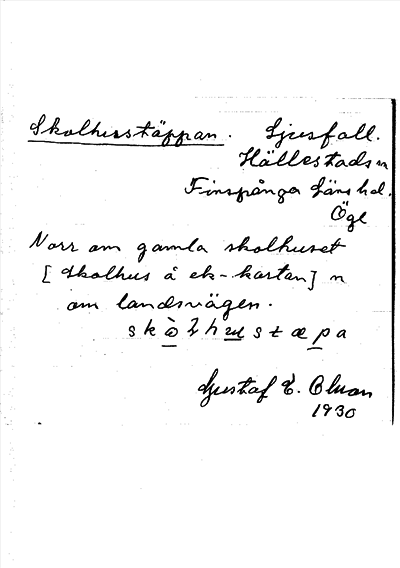 Skolhusstäppan. Ljusfall.
Hällestads sn
Finspånga läns hd.
Ögl
Norr om gamla skolhuset
[Skolhus å ek-kartan] n
om landsvägen.
Gustaf E.
1930